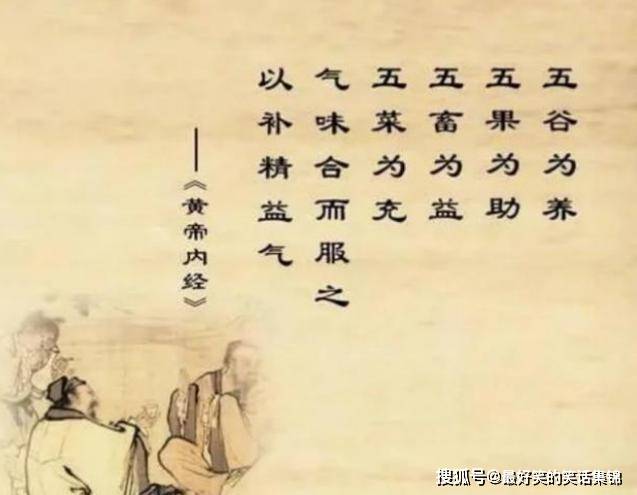 五谷为养
五果为助
五畜为益
五菜为充
气味合而服之
以补精益气
——《黄帝内经》
搜狐号@最好笑的笑话集锦